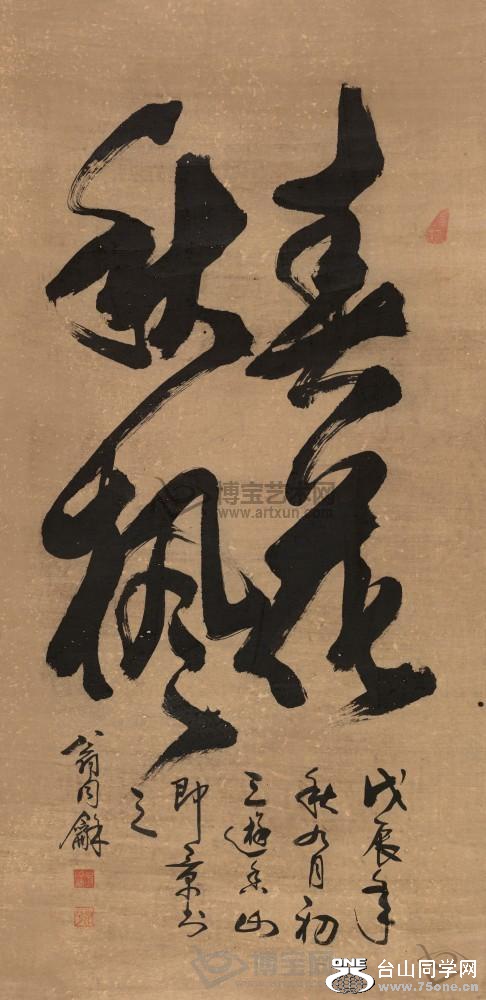 春花
秋楓
戊辰年
秋九月初
三遊香山
即景书
之
翁同龢
博宝艺术网
www.artxun.com
ONE
台山同学网
www.75one.cn